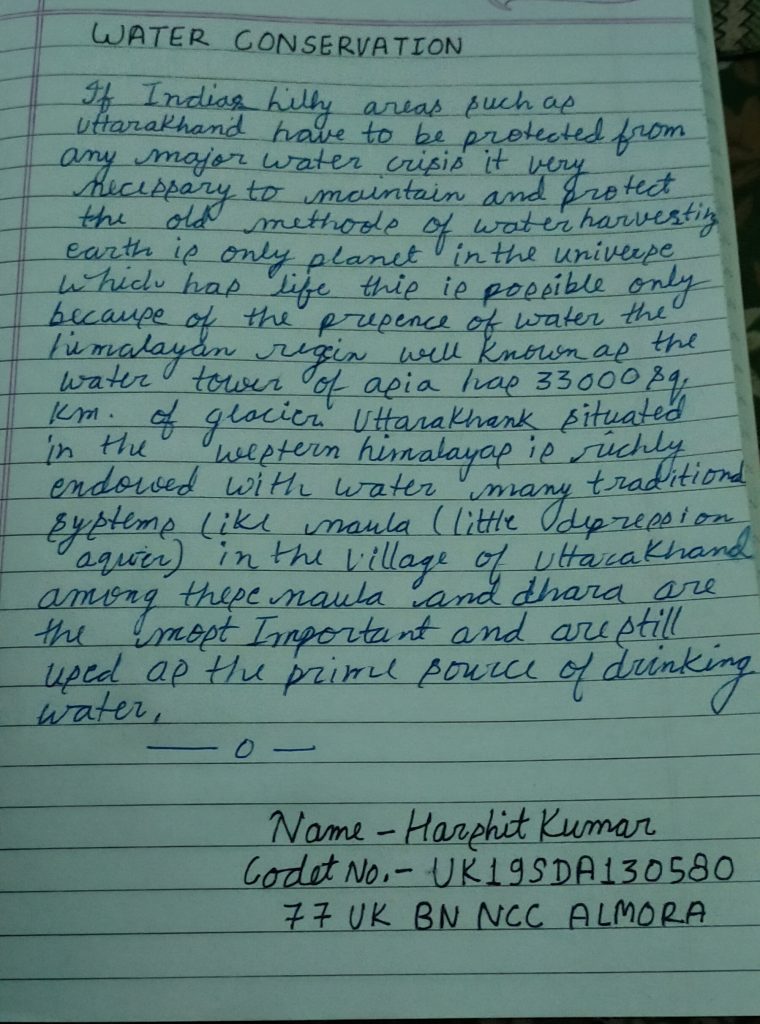 WATER CONSERVATION
If Indias hilly areas such as
Uttarakhand have to be protected from
any major water crisis it very
necessary to maintain and protect
the old methods of water harvesting
earth is only planet in the universe
which has life this is possible only
because of the presence of water the
himalayan regin well known as the
water tower of asia has 33000 sq.
km. of glacier Uttarakhank situated
in the western himalayas is richly
endowed with water many traditional
systems like naula (little depression
aquier) in the village of Uttarakhand
among these naula and dhara are
the most Important and are still
used as the prime source of drinking
water.
— 0 —
Name - Harshit Kumar
Codet No.- UK19SDA130580
77 UK BN NCC ALMORA